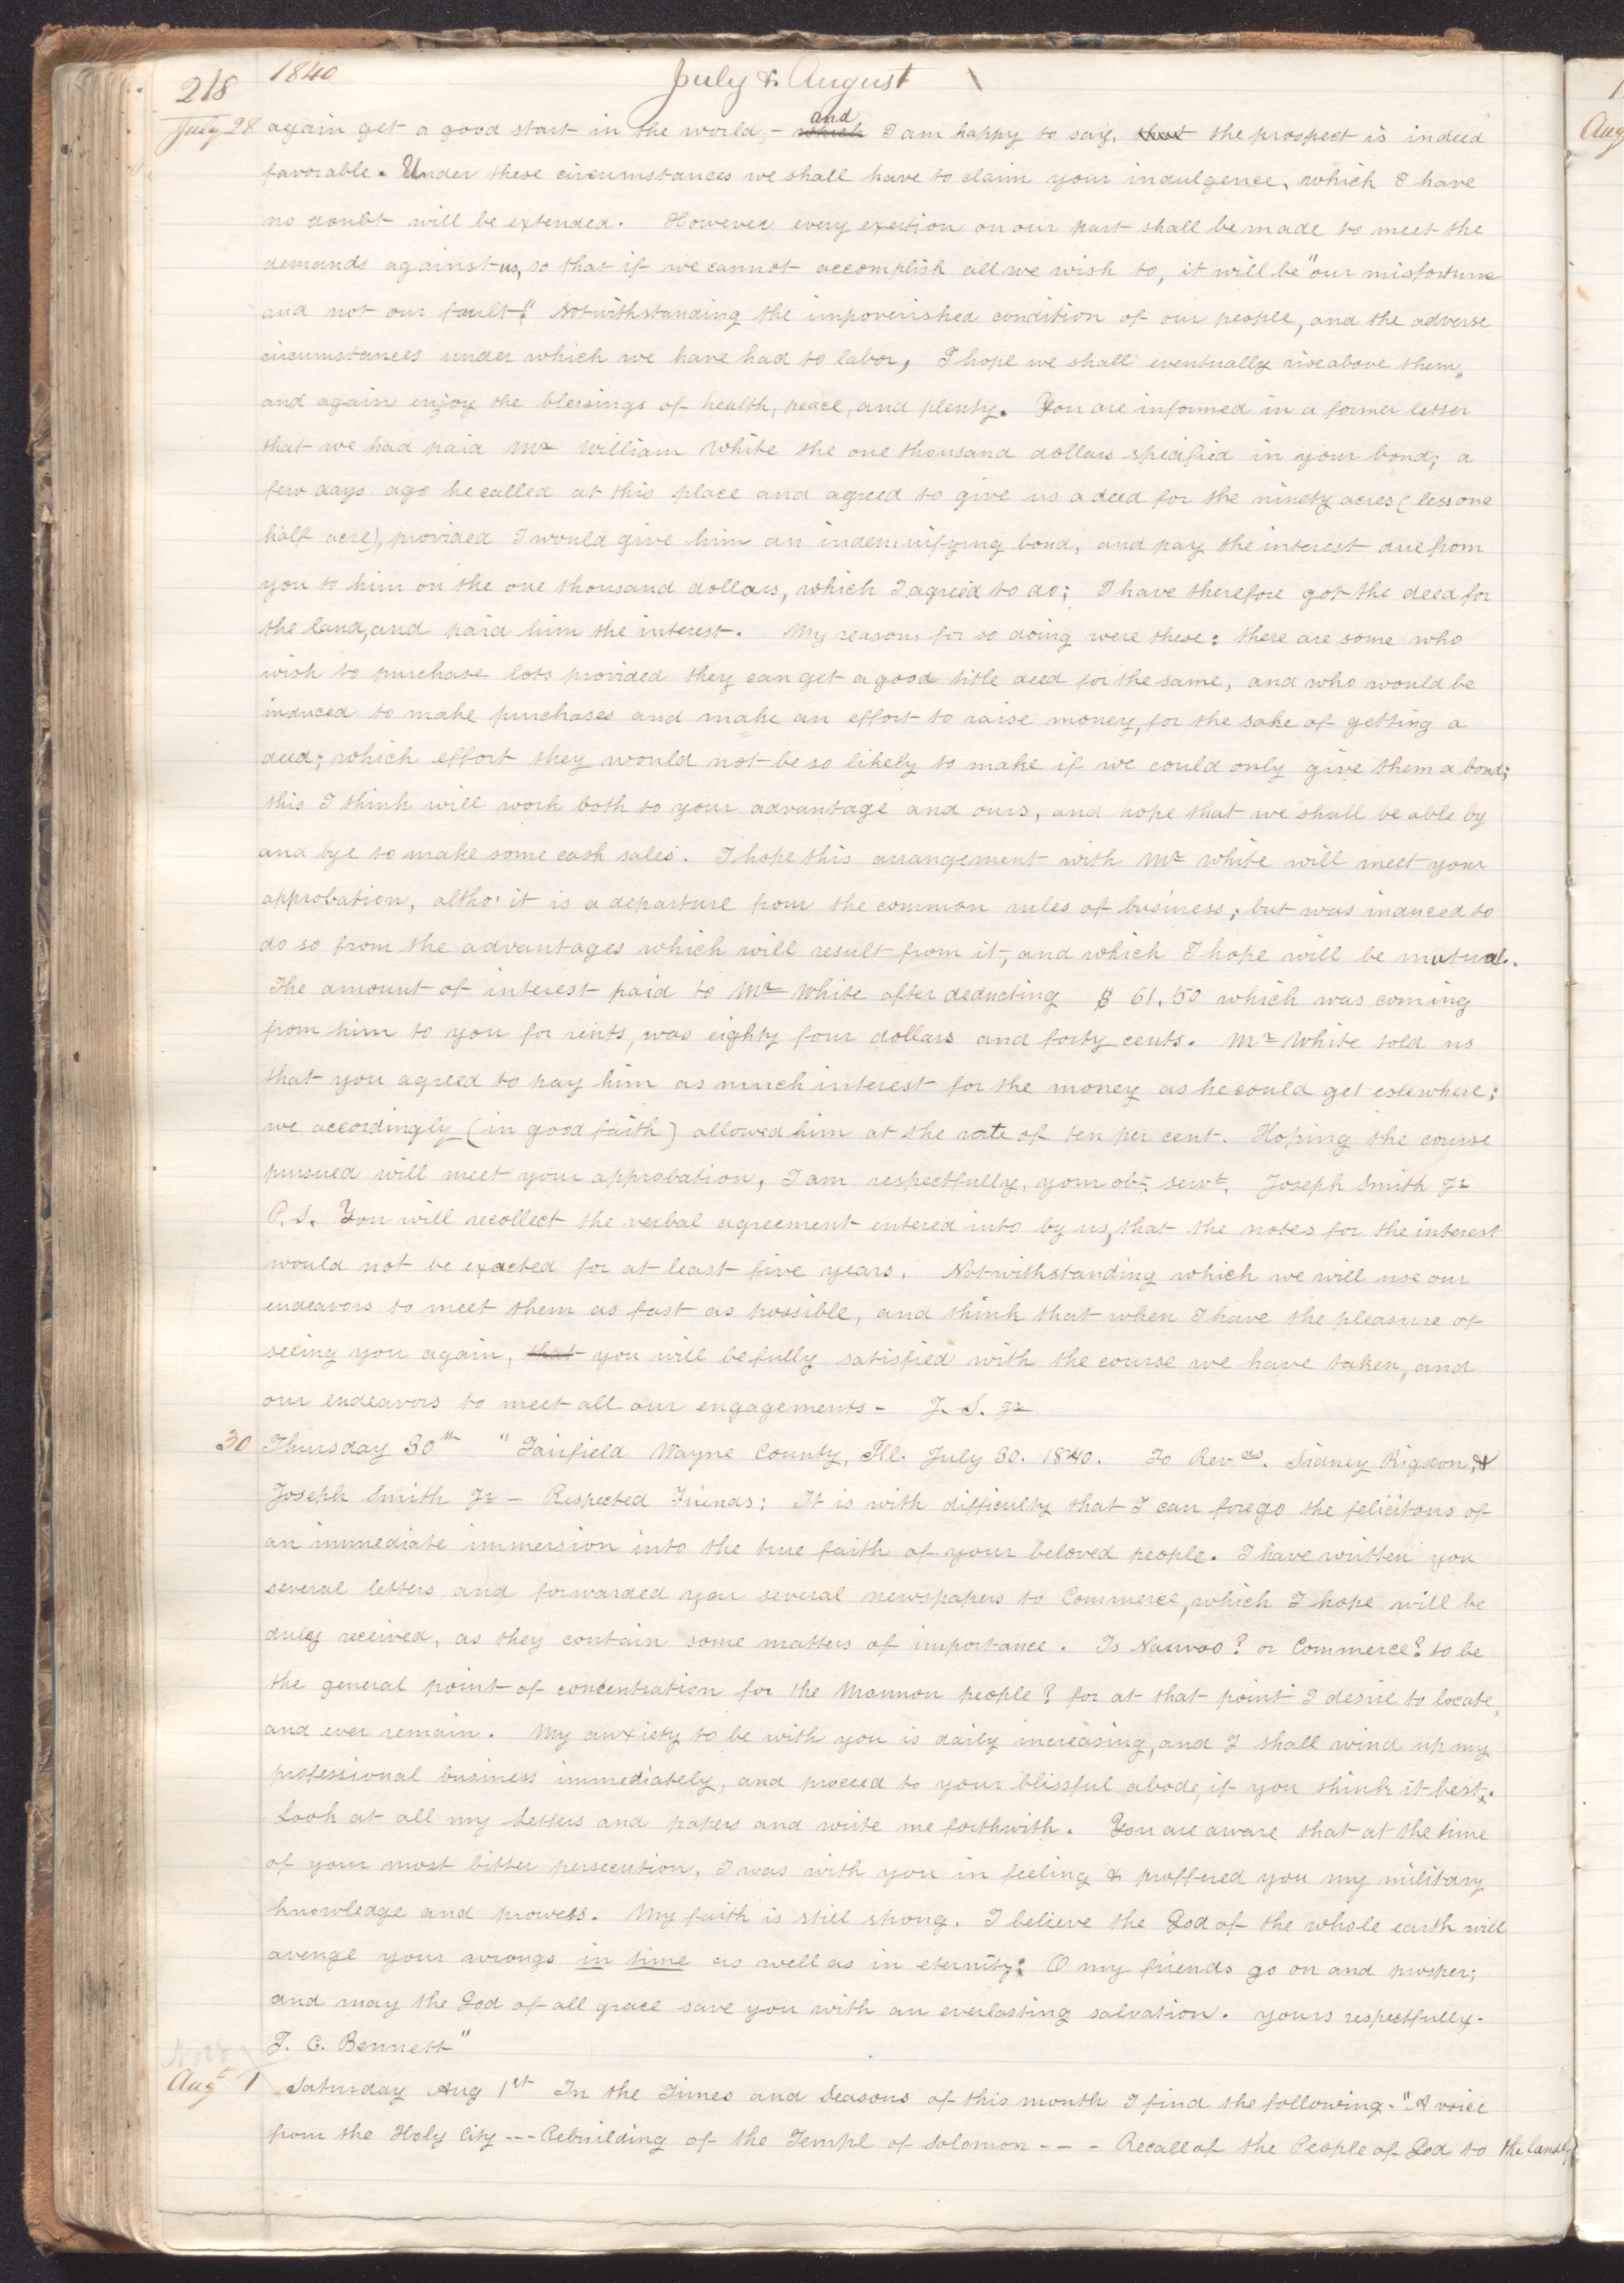 218 1840 July & August
July 28 again get a good start in the world,- which and I am happy to say, that the prospect is indeed
favorable. Under these circumstances we shall have to claim your indulgence, which I have
no doubt will be extended. However every exertion on our part shall be made to meet the
demands against us, so that if we cannot accomplish all we wish to, it will be "our misfortune
and not our fault." Notwithstanding the impoverished condition of our people, and the adverse
circumstances under which we have had to labor, I hope we shall eventually rise above them,
and again enjoy the blessings of health, peace, and plenty. You are informed in a former letter
that we had paid Mr William White the one thousand dollars specified in your bond; a
few days ago he called at this place and agreed to give us a deed for the ninety acres (less one
half acre), provided I would give him an indemnifying bond, and pay the interest due from
you to him on the one thousand dollars, which I agreed to do; I have therefore got the deed for
the land, and paid him the interest. My reasons for so doing were these: there are some who
wish to purchase lots provided they can get a good title deed for the same, and who would be
induced to make purchases and make an effort to raise money, for the sake of getting a
deed; which effort they would not be so likely to make if we could only give them a bond;
this I think will work both to your advantage and ours, and hope that we shall be able by
and bye to make some cash sales. I hope this arrangement with Mr White will meet your
approbation, altho' it is a departure from the common rules of business; but was induced to
do so from the advantages which will result from it, and which I hope will be mutual.
The amount of interest paid to Mr White after deducting $ 61.50 which was coming
from him to you for rents, was eighty four dollars and forty cents. Mr White told us
that you agreed to pay him as much interest for the money as he could get eslewhere;
we accordingly (in good faith) allowed him at the rate of ten per cent. Hoping the course
pursued will meet your approbation, I am respectfully, your obt. servt. Joseph Smith Jr
P.S. You will recollect the verbal agreement entered into by us, that the notes for the interest
would not be exacted for at least five years. Notwithstanding which we will use our
endeavors to meet them as fast as possible, and think that when I have the pleasure of
seeing you again, that you will be fully satisfied with the course we have taken, and
our endeavors to meet all our engagements - J. S. Jr
30 Thursday 30th "Fairfield Wayne County, Ill. July 30. 1840. To Revds. Sidney Rigdon, &
Joseph Smith Jr - Respected Friends: It is with difficulty that I can forego the felicitous of
an immediate immersion into the true faith of your beloved people. I have written you
several letters, and forwarded you several newspapers to Commerce, which I hope will be
duly received, as they contain some matters of importance. Is Nauvoo? or Commerce? to be
the general point of concentration for the Mormon people? for at that point I desire to locate,
and ever remain. My anxiety to be with you is daily increasing, and I shall wind up my
professional business immediately, and proceed to your blissful abode, if you think it best.
Look at all my Letters and papers and write me forthwith. You are aware that at the time
of your most bitter persecution, I was with you in feeling & proffered you my military
knowledge and prowess. My faith is still strong. I believe the God of the whole earth will
avenge your wrongs in time as well as in eternity: O my friends go on and prosper;
and may the God of all grace save you with an everlasting salvation. yours respectfully.
J. C. Bennett"
Augt 1 Saturday Aug 1st In the Times and Seasons of this month I find the following. "A voice
from the Holy City --- Rebuilding of the Templ of Solomon - - - Recall of the People of God to the land of
Aug